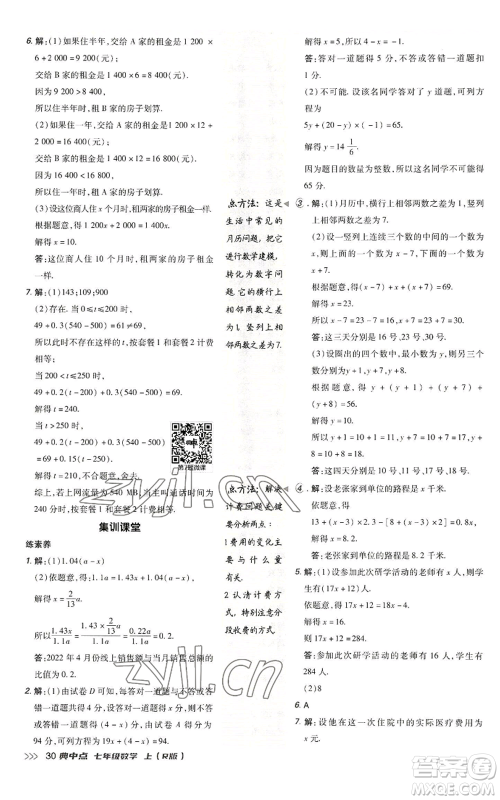 6. 解：(1)如果住半年,交给 A 家的租金是 1 200 ×
6+2 000=9 200(元),
交给 B 家的租金是 1 400×6=8 400(元),
因为 9 200>8 400,
所以住半年时,租 B 家的房子划算.
(2)如果住一年,交给 A 家的租金是 1 200×12+
2 000=16 400(元),
交给 B 家的租金是 1 400×12=16 800(元),
因为 16 400<16 800,
所以住一年时,租 A 家的房子划算.
(3)设这位商人住 x 个月时,租两家的房子租金一样.
根据题意,得 1 200x+2 000=1 400x,
解得 x=10.
答:这位商人住 10 个月时,租两家的房子租金
一样.
7. 解：(1)143;109;900
(2)存在. 当 0<t≤200 时,
49+0.3(540-500)=61≠69,
所以此时不存在这样的 t,按套餐 1 和套餐 2 的计
费相等;
当 200<t≤250 时,
49+0.2(t-200)+0.3(540-500)=69,
解得 t=240.
当 t>250 时,
49+0.2(t-200)+0.3(540-500)
=69+0.15(t-250),
解得 t=210,舍去.
综上,若上网流量为 540 MB,当主叫通话时间为
240 分时,按套餐 1 和套餐 2 的计费相等.
第7题微课
集训课堂
练素养
1. 解：(1)1.04(a-x)
(2)依题意,得 1.43x=1.04(a-x),
解得 x=2/13 a.
答:2022 年 4 月份线上销售额与当月销售总额的
比值为 0.2.
2. 解：(1)由试卷 D 可知,每答对一道题得 5 分.
设答错一道题扣 x 分,则不答一道题扣(4-x)分.
因为由试卷 B 可知,答错一道题与不答两道题得分为
94,所以 x+2(4-x)=5×20-94,
点方法：这是
生活中常见的
月历问题,把它
进行数学建模,
转化为数字问
题,它的横行上
相邻两数之差
为1,竖列上相
邻两数之差为7.
点方法：解决
计费问题关键
要知道：
1 费用的变化主
要与什么量有
关.
2 认清计费方式,
特别注意分
段收费的方式.
解得 x=2.
答:答对一道题得 5 分,不答或答错一道题都扣
2 分.
(2)不可能. 设该名同学答对了 y 道题,可列方
程为
5y+(20-y)×(-2)=65,
解得 y=14 1/6.
因为题目的数量为整数,所以该同学不可能得
65 分.
3. 解：(1)月历中,横行上相邻两数之差为 1,竖列
上相邻两数之差为 7.
(2)设一竖列上连续三个数的中间的数为 x,则另
外两个数分别为 x-7,x+7.
根据题意,得 x-7+x+x+7=51,
解得 x=17.
所以 x-7=17-7=10,x+7=17+7=24.
答:这三天分别是 10 号,17 号,24 号.
(3)设圈出的四个数中,最小的数为 y,则另三个
数分别为 y+1,y+7,y+8.
根据题意,得 y+(y+1)+(y+7)+(y+8)=
56,
解得 y=10.
所以 y+1=10+1=11,y+7=10+7=17,y+
8=10+8=18.
答:这四天分别是 10 号,11 号,17 号,18 号.
4. 解：设老张家到单位的路程是 x 千米.
依题意,得
13+(x-3)×2.3=8+(x-3)×2+0.8x,
解得 x=8.2.
答:老张家到单位的路程是 8.2 千米.
5. 解：(1)设参加此次研学活动的老师有 x 人,学生
有(17x+12)人.
依题意,得 18x-4=17x+12,
解得 x=16,
所以 17x+12=17×16+12=284.
答:参加此次研学活动的老师有 16 人,学生有
284 人.
(2)8
6. A
7. 解：设他在这一次住院中的实际医疗费用为 x 元.
>>> 30 典中点 七年级数学 上(R版)
zyjl.cn